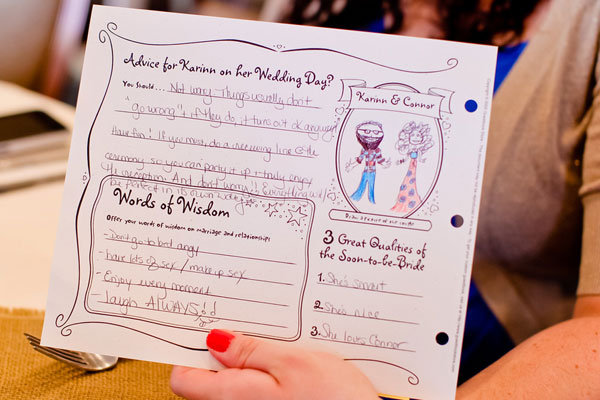 Advice for Karinn on her Wedding Day?
You should... Not worry - Things usually don't
"go wrong" & if they do, it turns out ok anyway!
Have fun! If you must, do a receiving line @ the
ceremony so you can party it up & truly enjoy
the reception. And don't worry!! Everything will
be perfect in its own way
Words of Wisdom
Offer your words of wisdom on marriage and relationships
- Don't go to bed angry
- have lots of sex / makeup sex
- Enjoy every moment
- laugh ALWAYS!!
Karinn & Connor
Draw a picture of our couple
3 Great Qualities of
the Soon-to-be-Bride
1. She's smart
2. She's nice
3. She loves Connor